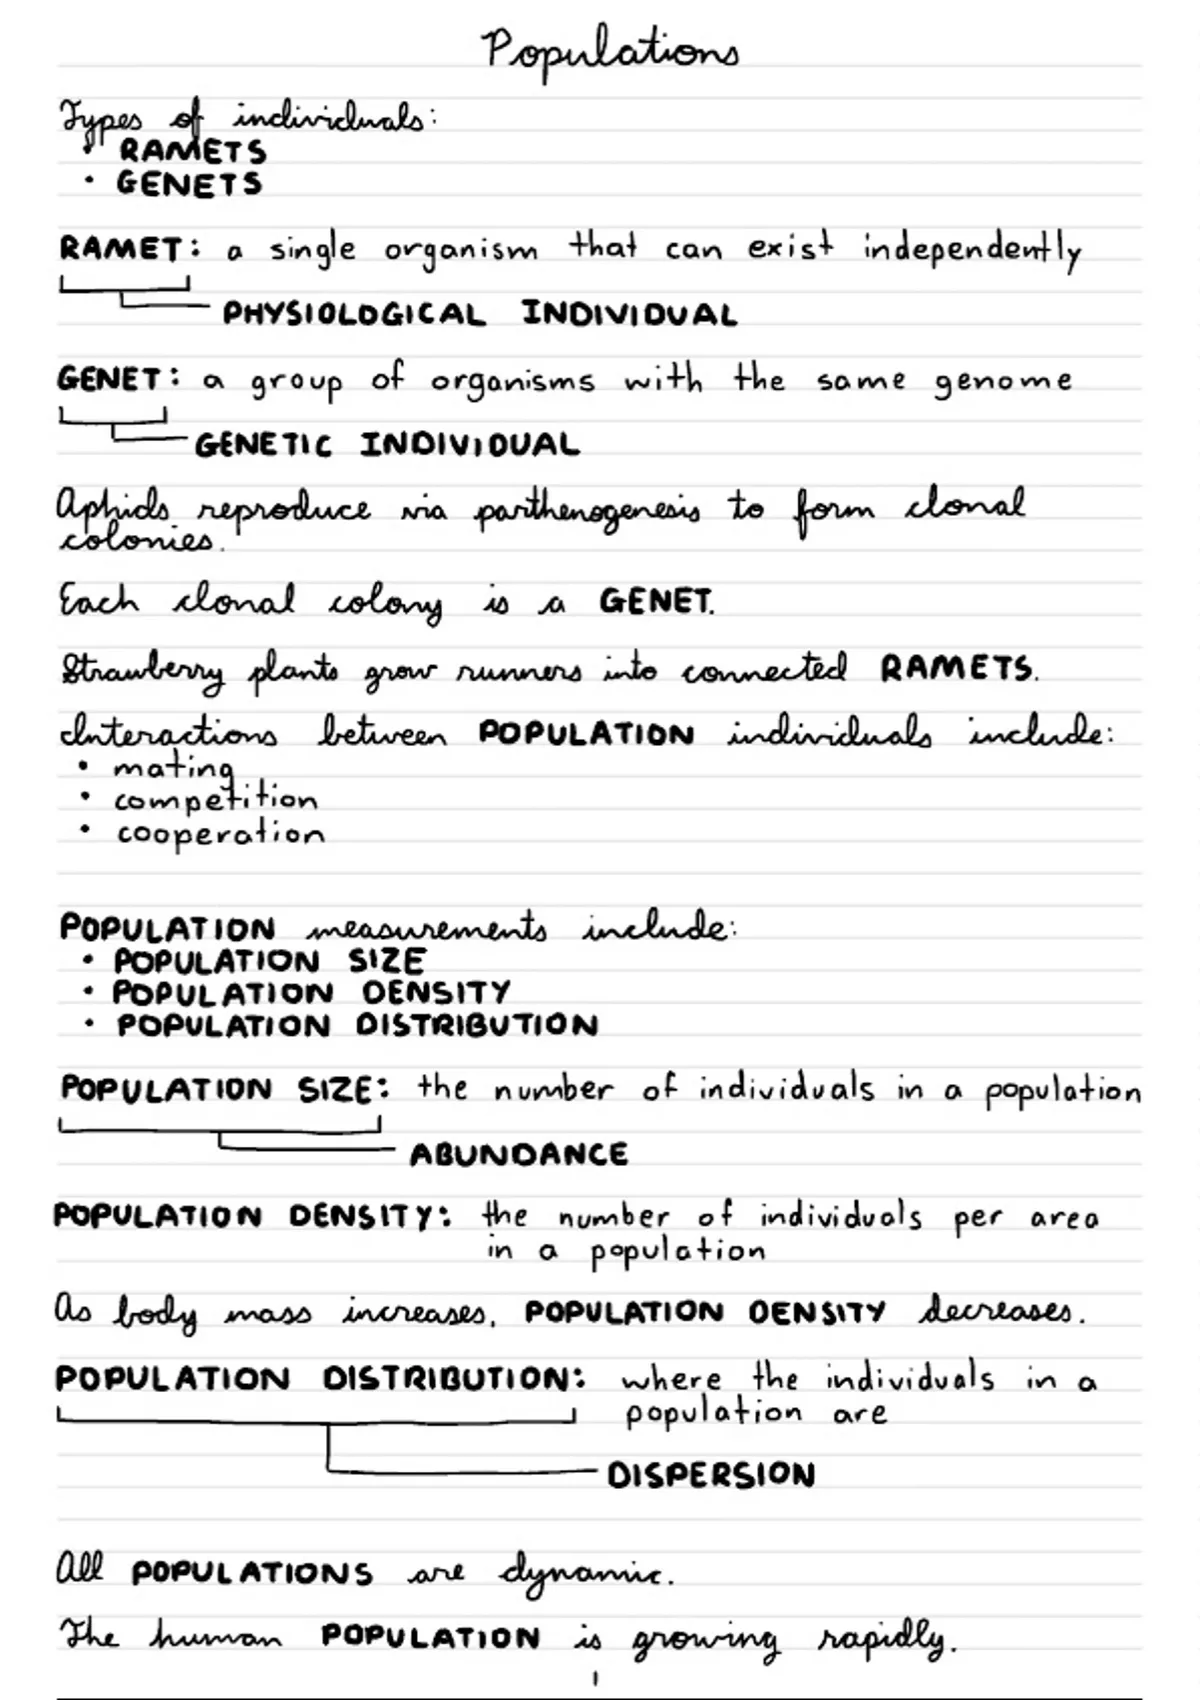 Populations
Types of individuals:
• RAMETS
• GENETS
RAMET: a single organism that can exist independently
PHYSIOLOGICAL INDIVIDUAL
GENET: a group of organisms with the same genome
GENETIC INDIVIDUAL
Aphids reproduce via parthenogenesis to form clonal
colonies.
Each clonal colony is a GENET.
Strawberry plants grow runners into connected RAMETS.
Interactions between POPULATION individuals include:
• mating
• competition
• cooperation
POPULATION measurements include:
• POPULATION SIZE
• POPULATION DENSITY
• POPULATION DISTRIBUTION
POPULATION SIZE: the number of individuals in a population
ABUNDANCE
POPULATION DENSITY: the number of individuals per area
in a population
As body mass increases, POPULATION DENSITY decreases.
POPULATION DISTRIBUTION: where the individuals in a
population are
DISPERSION
All POPULATIONS are dynamic.
The human POPULATION is growing rapidly.
1